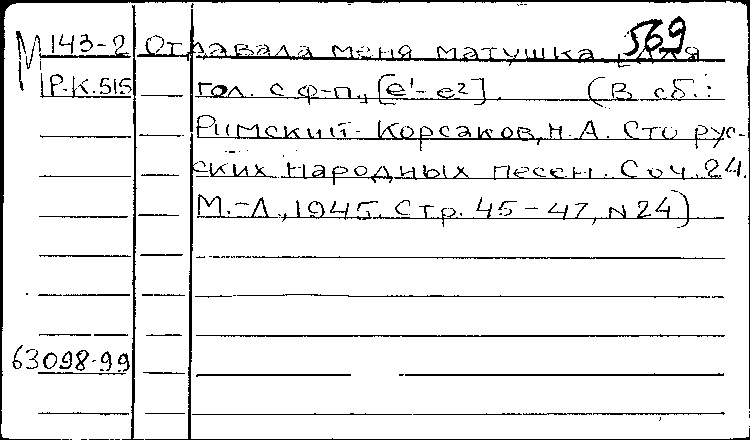 569
М 143-2 Отдавала меня матушка. Для
Р.К.515 гол. с ф-п., [e¹-e²]. (В сб.:
Римский-Корсаков, Н.А. Сто рус-
ских народных песен. Соч. 24.
М.-Л., 1945. Стр. 45-47, N 24)
63098-99